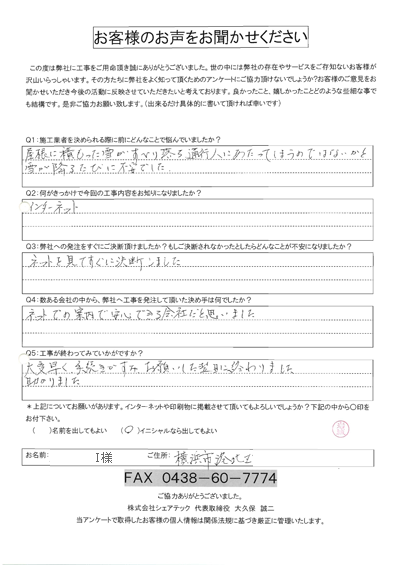 お客様のお声をお聞かせください
この度は弊社に工事をご用命頂き誠にありがとうございました。世の中には弊社の存在やサービスをご存知ないお客様が
沢山いらっしゃいます。その方たちに弊社をよく知って頂くためのアンケートにご協力頂けないでしょうか?お客様のご意見をお
聞かせいただき今後の活動に反映させていただきたいと考えております。良かったこと、嬉しかったことどのような些細な事で
も結構です。是非ご協力お願い致します。(出来るだけ具体的に書いて頂ければ幸いです)
Q1:施工業者を決められる際に前にどんなことで悩んでいましたか?
屋根に積もった雪がすべり落ち通行人にあたってしまうのではないかと
雪が降るたびに不安でした
Q2:何がきっかけで今回の工事内容をお知りになりましたか?
インターネット
Q3:弊社への発注をすぐにご決断頂けましたか?もしご決断されなかったとしたらどんなことが不安になりましたか?
ネットを見てすぐに決断しました
Q4:数ある会社の中から、弊社へ工事を発注して頂いた決め手は何でしたか?
ネットでの案内で安心できる会社だと思いました
Q5:工事が終わってみていかがですか?
大変早く手続きがすみ、お願いした翌日に終わりました
助かりました
*上記についてお願いがあります。インターネットや印刷物に掲載させて頂いてもよろしいでしょうか?下記の中から○印を
お付下さい。
( )名前を出してもよい (○)イニシャルなら出してもよい
お名前: I様 ご住所: 横浜市港北区
FAX 0438-60-7774
ご協力ありがとうございました。
株式会社シェアテック 代表取締役 大久保 誠二
当アンケートで取得したお客様の個人情報は関係法規に基づき厳正に管理いたします。